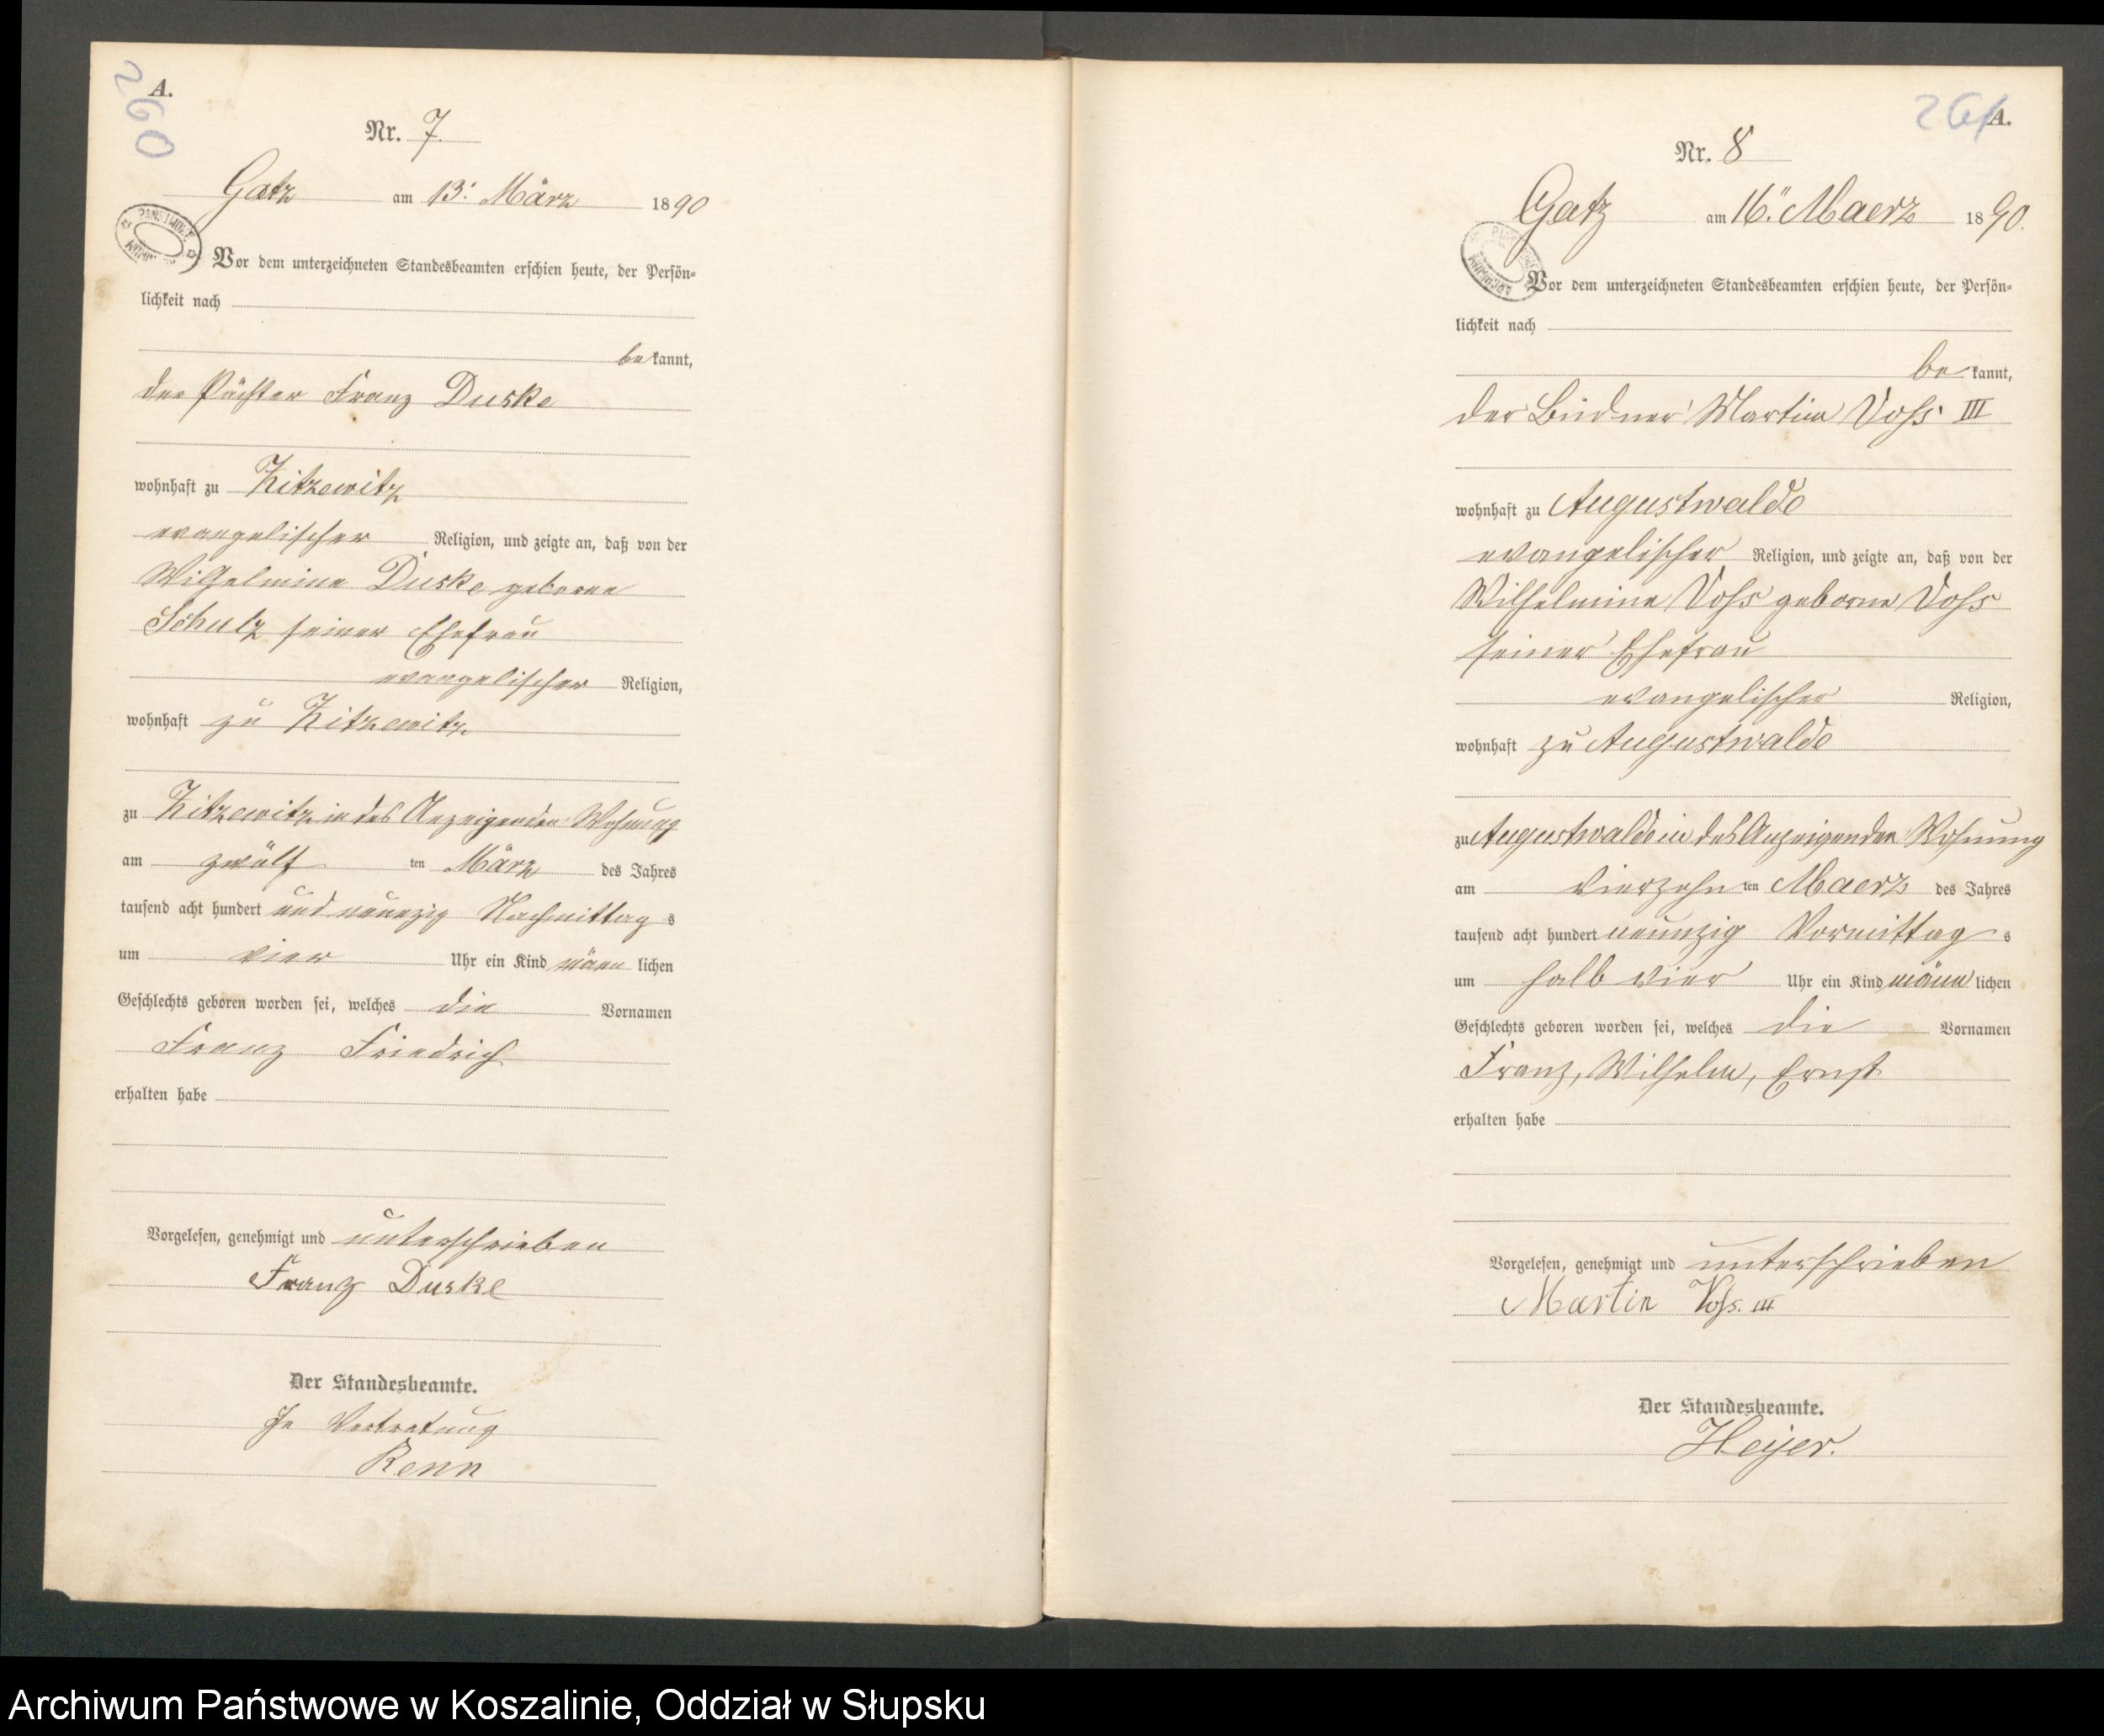 260
A.
Nr. 7.
Gatz am 13. März 1890
Vor dem unterzeichneten Standesbeamten erschien heute, der Persön-
lichkeit nach
bekannt,
der Pächter Franz Duske
wohnhaft zu Kitzewitz
evangelischer Religion, und zeigte an, daß von der
Wilhelmine Duske geborne
Schulz seiner Ehefrau
evangelischer Religion,
wohnhaft zu Kitzewitz
zu Kitzewitz in des Anzeigenden Wohnung
am zwölf ten März des Jahres
tausend acht hundert und neunzig Nachmittags
um vier Uhr ein Kind männlichen
Geschlechts geboren worden sei, welches die Vornamen
Franz Friedrich
erhalten habe
Vorgelesen, genehmigt und unterschrieben
Franz Duske
Der Standesbeamte.
In Vertretung
Renn
261
A.
Nr. 8
Gatz am 16. Maerz 1890.
Vor dem unterzeichneten Standesbeamten erschien heute, der Persön-
lichkeit nach
bekannt,
der Büdner Martin Voß III
wohnhaft zu Augustwalde
evangelischer Religion, und zeigte an, daß von der
Wilhelmine Voß geborne Voß
seiner Ehefrau
evangelischer Religion,
wohnhaft zu Augustwalde
zu Augustwalde in des Anzeigenden Wohnung
am vierzehn ten Maerz des Jahres
tausend acht hundert neunzig Vormittags
um halb vier Uhr ein Kind männlichen
Geschlechts geboren worden sei, welches die Vornamen
Franz, Wilhelm, Ernst
erhalten habe
Vorgelesen, genehmigt und unterschrieben
Martin Voß. III
Der Standesbeamte.
Heyer.
Archiwum Państwowe w Koszalinie, Oddział w Słupsku